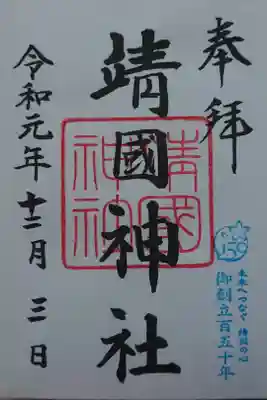 奉拝
靖國神社
靖國
神社
令和元年十二月三日
150
未来へつなぐ靖國の心
御創立百五十年